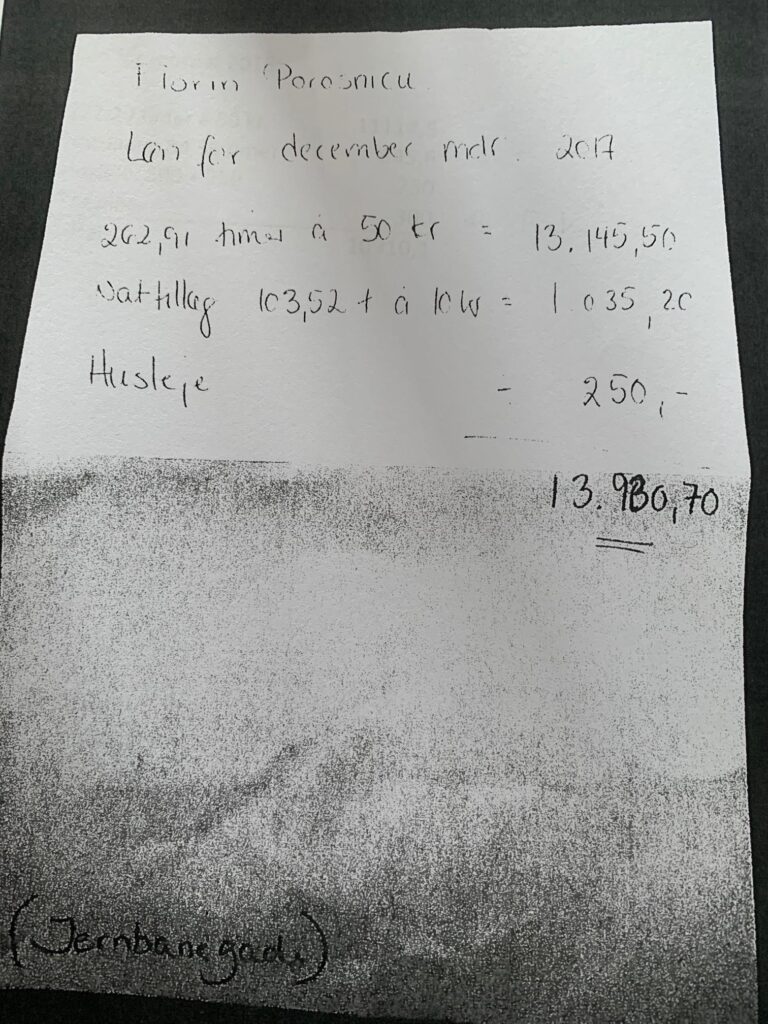 Florin Porosnicu
Løn for december mdr. 2017
262,91 timer á 50 kr = 13.145,50
Nattillæg 103,52 t á 10 kr = 1.035,20
Husleje - 250,-
13.930,70
(Jernbanegade)